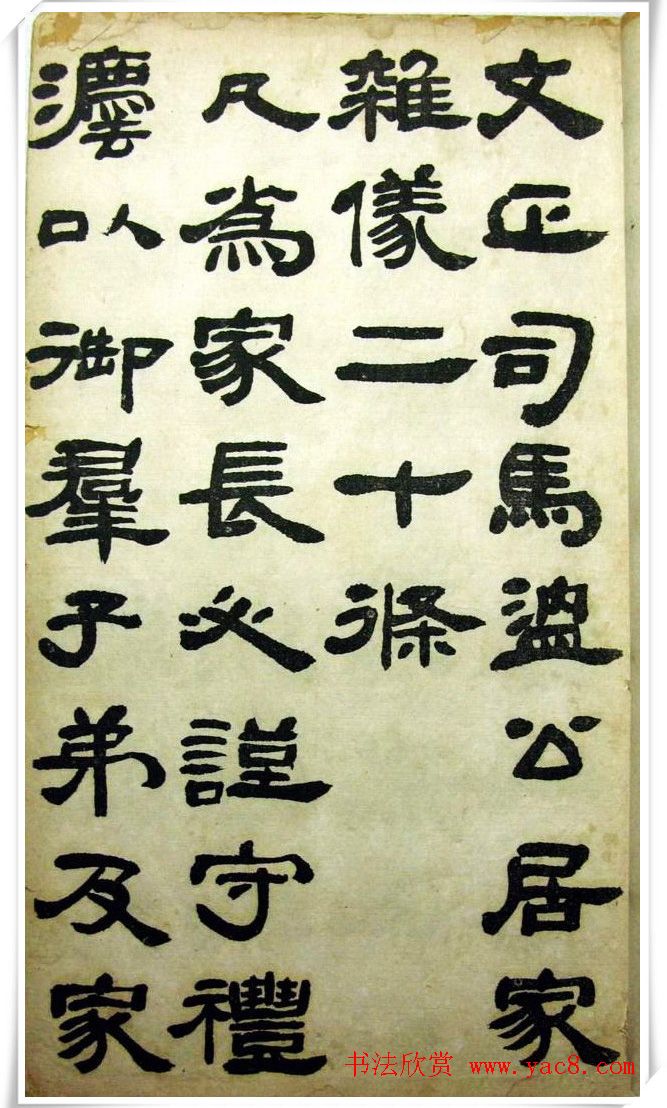 文正司馬溫公居家
雜儀二十條
凡為家長必謹守禮
灋以御羣子弟及家
书法欣赏 www.yac8.com